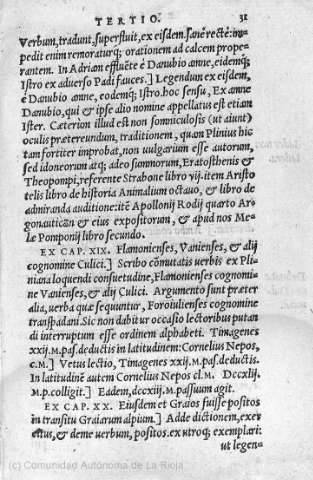 TERTIO. 31
Verbum, tradunt, superfluit, ex eisdem. Sanè rectè: im-
pedit enim renoratur; orationem ad calcem prope-
rantem. In Adriam effluētē è Danubio amne, eidemq;
Istro ex aduerso Padi fauces.] Legendum ex eisdem,
è Danubio amne, eodemq; Istro. hoc sensu, Ex amne
Danubio, qui & ipse alio nomine appellatus est etiam
Ister. Cæterùm illud est non somniculosis (ut aiunt)
oculis prætereundum, traditionem, quam Plinius hic
tam fortiter improbat, non uulgarium esse autorum,
sed idoneorum atq; adeo summorum, Eratosthenis &
Theopompi, referente Strabone libro vij. item Aristo
telis libro de historia Animalium octauo, & libro de
admiranda auditione: itē Apollonij Rodij quarto Ar
gonauticῶn & eius expositorum, & apud nos Me-
læ Pomponij libro secundo.
EX CAP. XIX. Flamonienses, Vanienses, & alij
cognomine Culici.] Scribo cōmutatis uerbis ex Pli-
niana loquendi consuetudine, Flamonienses cognomi-
ne Vanienses, & alij Culici. Argumento sunt præter
alia, uerba quæ sequuntur, Foroiulienses cognomine
transpadani. Sic non dabitur occasio lectoribus putan
di interruptum esse ordinem alphabeti. Timagenes
xxij. M. pas. deductis in latitudinem: Cornelius Nepos,
c.M.] Vetus lectio, Timagenes xxij. M. pas. deductis.
In latitudinē autem Cornelius Nepos cl. M. Dccxlij.
M. p. colligit.] Eadem, dccxlij. M. passuum agit.
EX CAP. XX. Eiusdem et Graios fuisse positos
in transitu Graiarum alpium.] Adde dictionem, exer
citus, & deme uerbum, positos. ex utroq; exemplari:
ut legen-
(c) Comunidad Autónoma de La Rioja